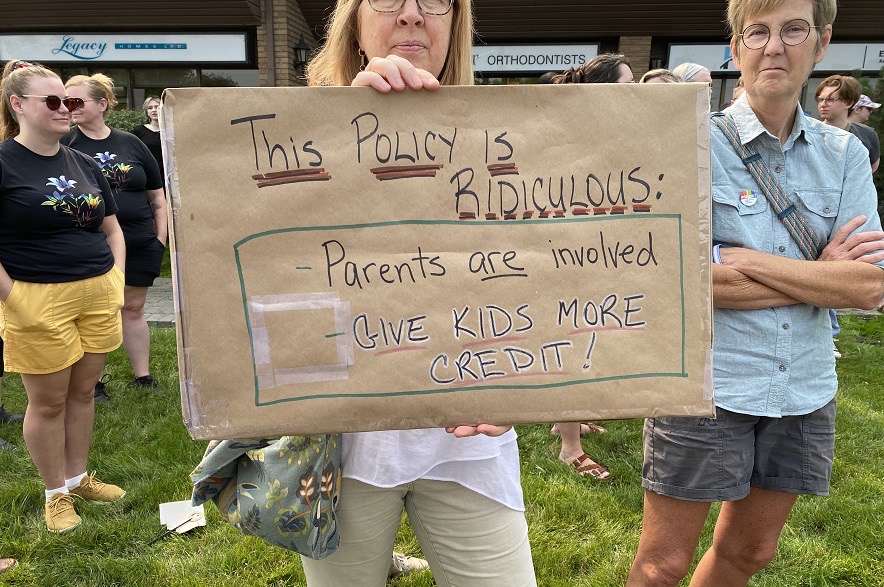 Legacy HOMES LTD
ORTHODONTISTS
This Policy is
Ridiculous:
- Parents are involved
- Give Kids More
Credit!